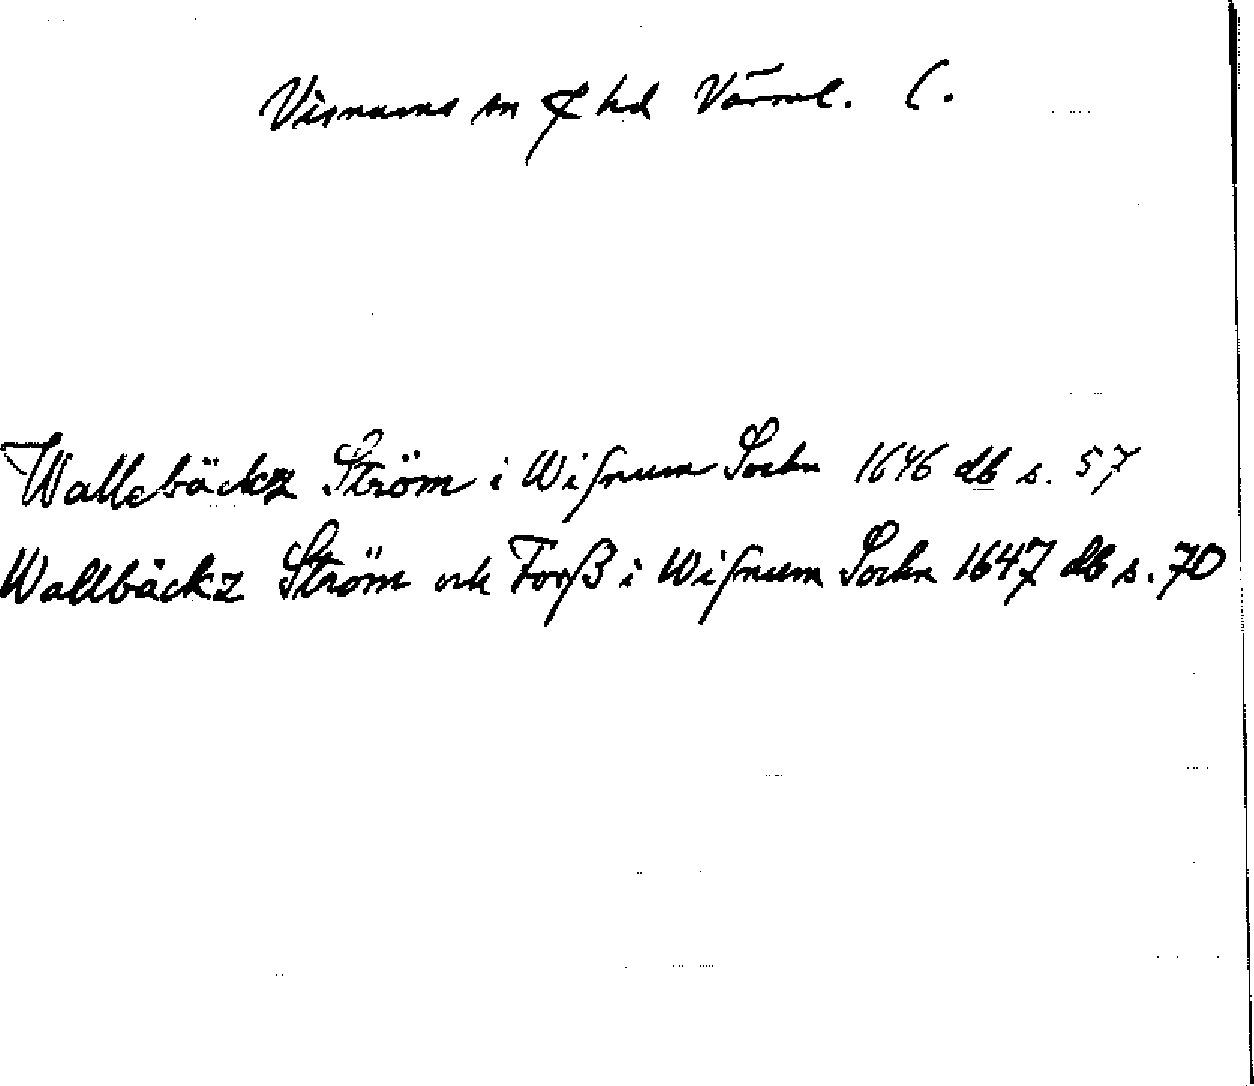 Visnums sn & hd Värml. l.
Wallebäckz Ström i Wiſnum Sochn 1646 db s. 57
Wallbäckz Ström och Forß i Wiſnum Sochn 1647 db s. 70